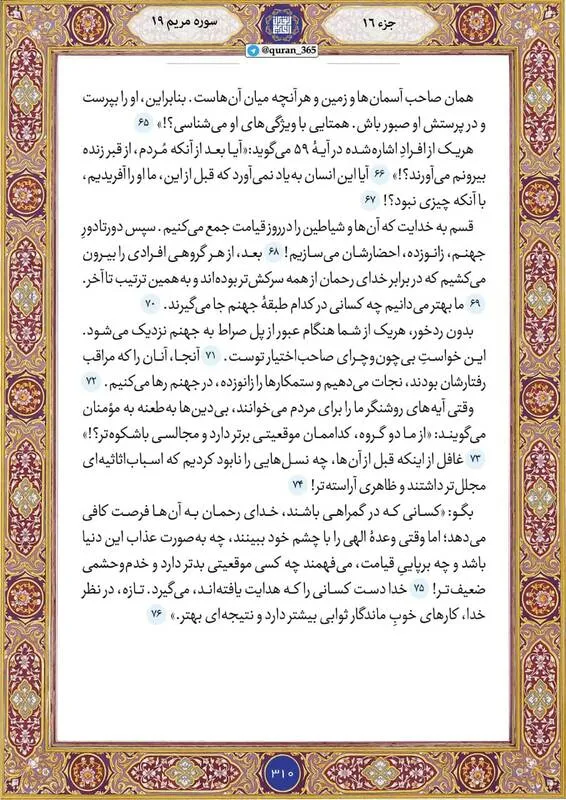 جزء ۱۶
سوره مریم ۱۹
@quran_365
همان صاحب آسمان‌ها و زمین و هر آنچه میان آن‌هاست. بنابراین، او را بپرست
و در پرستش او صبور باش. همتایی با ویژگی‌های او می‌شناسی؟!» ۶۵
هریک از افرادِ اشاره‌شده در آیهٔ ۵۹ می‌گوید: «آیا بعد از آنکه مُردم، از قبر زنده
بیرونم می‌آورند؟!» ۶۶ آیا این انسان به‌یاد نمی‌آورد که قبل از این، ما او را آفریدیم،
با آنکه چیزی نبود؟! ۶۷
قسم به خدایت که آن‌ها و شیاطین را درروز قیامت جمع می‌کنیم. سپس دورتادورِ
جهنم، زانوزده، احضارشان می‌سازیم! ۶۸ بعد، از هر گروهی افرادی را بیرون
می‌کشیم که در برابر خدای رحمان از همه سرکش‌تر بوده‌اند و به همین ترتیب تا آخر.
۶۹ ما بهتر می‌دانیم چه کسانی در کدام طبقهٔ جهنم جا می‌گیرند. ۷۰
بدون ردخور، هریک از شما هنگام عبور از پل صراط به جهنم نزدیک می‌شود.
این خواستِ بی‌چون‌وچرای صاحب‌اختیار توست. ۷۱ آنجا، آنان را که مراقب
رفتارشان بودند، نجات می‌دهیم و ستمکارها را زانوزده، در جهنم رها می‌کنیم. ۷۲
وقتی آیه‌های روشنگر ما را برای مردم می‌خوانند، بی‌دین‌ها به‌طعنه به مؤمنان
می‌گویند: «از ما دو گروه، کداممان موقعیتی برتر دارد و مجالسی باشکوه‌تر؟!»
۷۳ غافل از اینکه قبل از آن‌ها، چه نسل‌هایی را نابود کردیم که اسباب‌اثاثیه‌ای
مجلل‌تر داشتند و ظاهری آراسته‌تر! ۷۴
بگو: «کسانی که در گمراهی باشند، خدای رحمان به آن‌ها فرصت کافی
می‌دهد؛ اما وقتی وعدهٔ الهی را با چشم خود ببینند، چه به‌صورت عذاب این دنیا
باشد و چه برپاییِ قیامت، می‌فهمند چه کسی موقعیتی بدتر دارد و خدم‌وحشمی
ضعیف‌تر! ۷۵ خدا دست کسانی را که هدایت یافته‌اند، می‌گیرد. تازه، در نظر
خدا، کارهای خوبِ ماندگار ثوابی بیشتر دارد و نتیجه‌ای بهتر.» ۷۶
۳۱۰